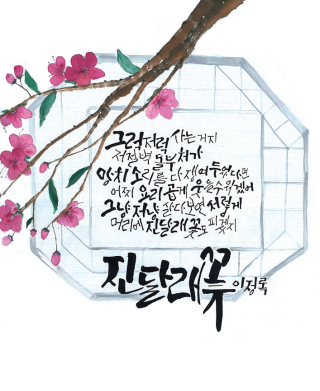 그럭저럭 사는 거지
저 절벽 돌부처가
망치 소리를 다 쟁여두었다면
어찌 요리 곱게 웃을 수 있겠어
그냥저냥 살다보면 저렇게
머리에 진달래꽃도 피겠지
진달래꽃 이정록